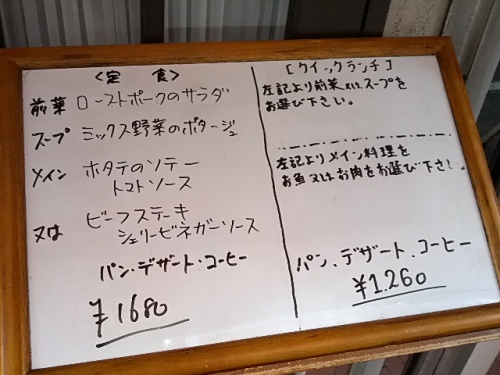 ＜定 食＞
前菜 ローストポークのサラダ
スープ ミックス野菜のポタージュ
メイン ホタテのソテー
トマトソース
又は ビーフステーキ
シェリービネガーソース
パン・デザート・コーヒー
¥1680
[クイックランチ]
左記より前菜又は、スープを
お選び下さい。
左記よりメイン料理を
お魚又はお肉をお選び下さい。
パン、デザート、コーヒー
¥1.260